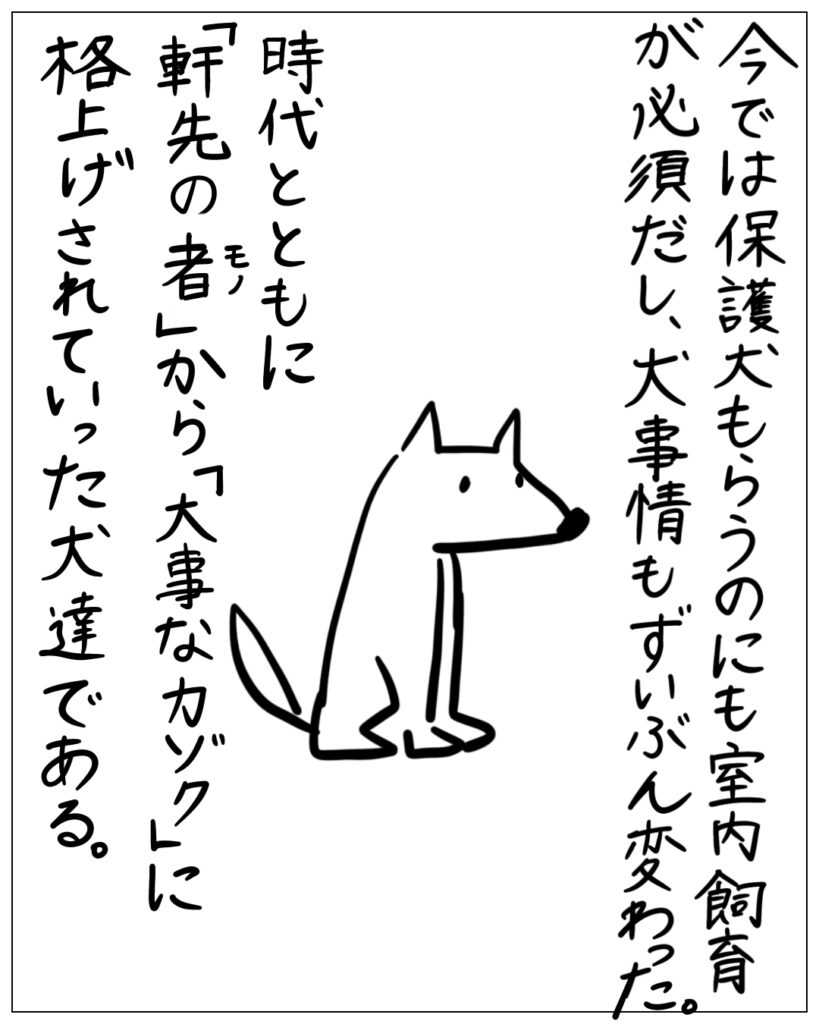 今では保護犬もらうのにも室内飼育
が必須だし、犬事情もずいぶん変わった。
時代とともに
「軒先の者モノ」から「大事なカゾク」に
格上げされていった犬達である。